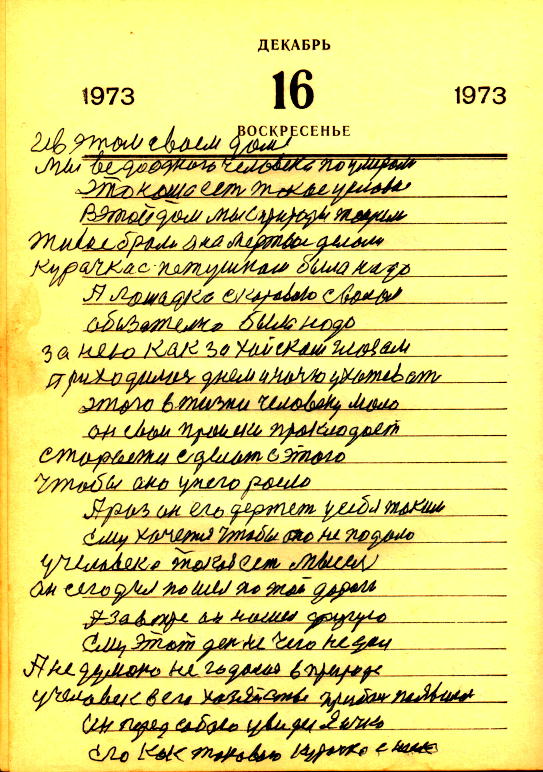 ДЕКАБРЬ
1973 16 1973
ВОСКРЕСЕНЬЕ
И в этом своем доме
Мы бедародного человека
Это наша ест такое условие
В этой дом мы с природы тащим
Живое брали а на мертвое делали
Курачка с петушком была надо
А лошадка с коровою
обязателно была надо
за нею как за хозяском глазам
приходимся днем и ночю ухаживат
этого в жизни человеку мало
он свои происки прокладоет
сделат с этого
Чтобы ано унего росло
А раз он его держет усебя таким
Ему хочется чтобы оно не подало
у человека такая ест мысел
он сегодня пошел по той дороги
А завтре он нашел другую
Ему этот ден не чего не дал
А не думано не гадано в природе
у человек в его хозяйстве прибол появился
Он перед собою увидел яичко
Его как таковою курочка с